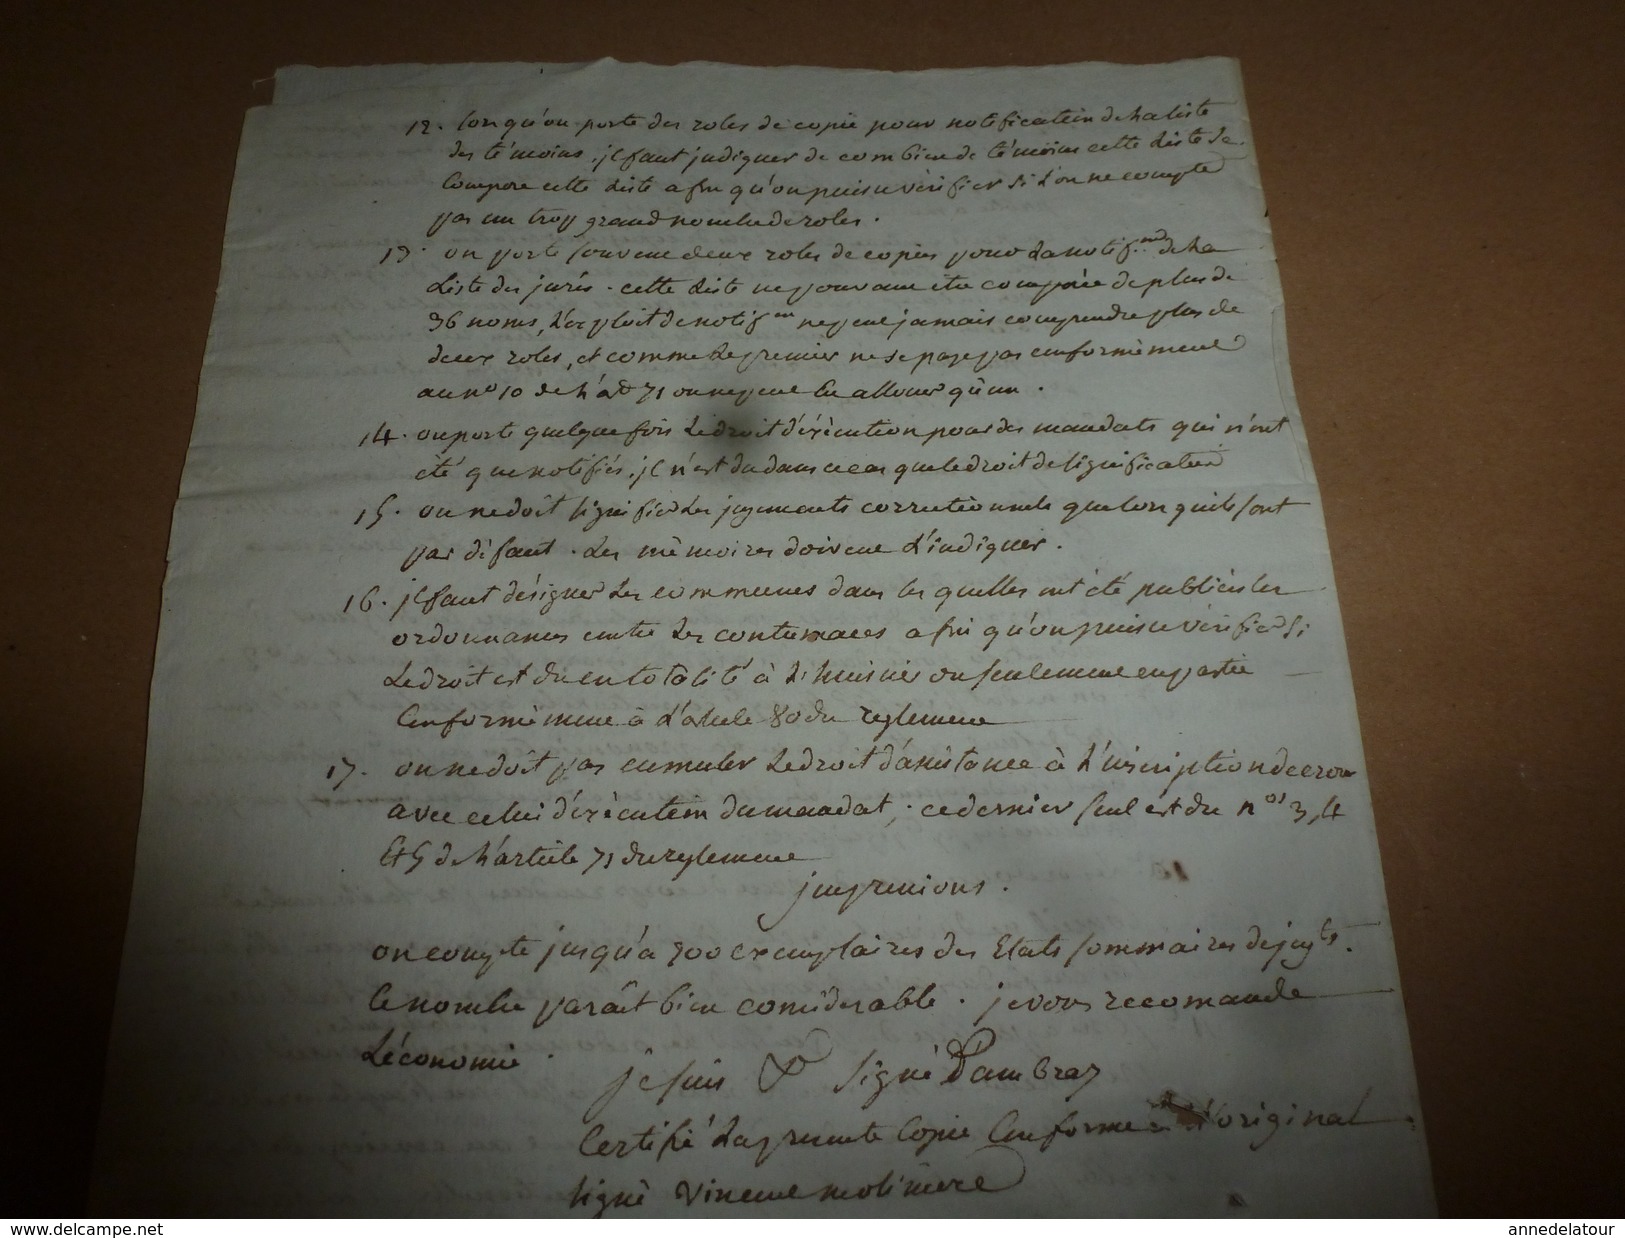 12. lorsqu'on porte des roles de copie pour notification de la liste
des témoins, il faut indiquer de combien de témoins cette liste se
compose cette liste afin qu'on puisse vérifier si l'on ne compte
pas un trop grand nombre de roles.
13. on porte souvent deux roles de copies pour la notif.on de la
Liste des jurés. cette liste ne pouvant être composée de plus de
36 noms, l'exploit de notif.on ne peut jamais comprendre plus de
deux roles, et comme le premier ne se paye pas conformément
au n° 10 de l'art 71 on ne peut en allouer qu'un.
14. on porte quelque fois le droit d'exécution pour des mandats qui n'ont
été que notifiés, il n'est du dans ce cas que le droit de signification
15. on ne doit signifier les jugements correctionnels que lorsqu'ils sont
par défaut. Les mémoires doivent l'indiquer.
16. il faut désigner les communes dans les quelles ont été publiées les
ordonnances contre les contumaces afin qu'on puisse vérifier si
Le droit est du en totalité à l'huissier ou seulement en partie
Conformément à l'article 80 du reglement
17. on ne doit pas cumuler le droit d'assistance à l'inscription de ecrou
avec celui d'exécution du mandat, ce dernier seul est du nos 3, 4
et 5 de l'article 71 du reglement
impressions.
on compte jusqu'à 300 exemplaires des Etats sommaires de jugts.
Ce nombre parait bien considerable. je vous recomande
L'économie.
je suis & signé Dambray
Certifié la presente Copie Conforme à l'original
signé Vincent molinière
www.delcampe.net
annedelatour